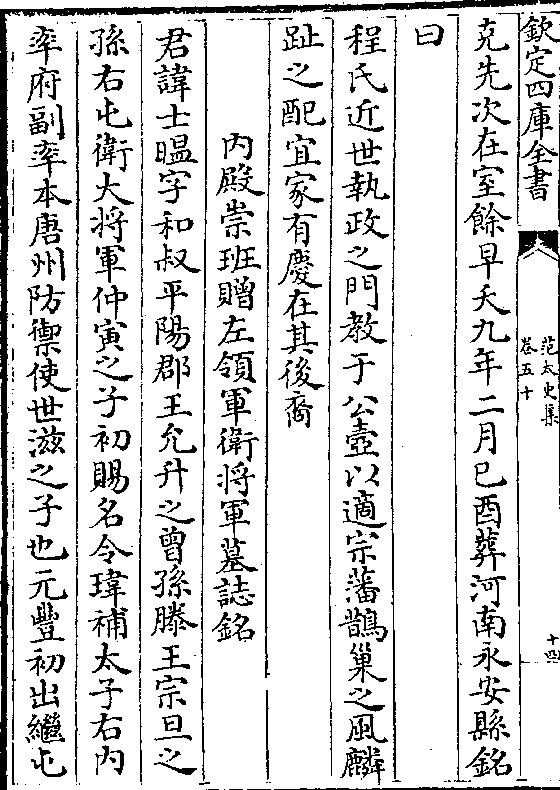 欽定四庫全書
范太史集
卷五十
十四
克先次在室餘早夭九年二月己酉葬河南永安縣銘
曰
程氏近世執政之門教于公壼以適宗藩鵲巢之風麟
趾之配宜家有慶在其後裔
内殿崇班贈左領軍衛將軍墓誌銘
君諱士𥈭字和叔平陽郡王允升之曾孫滕王宗旦之
孫右屯衛大將軍仲寅之子初賜名令瑋補太子右内
率府副率本唐州防禦使世滋之子也元豐初出繼屯